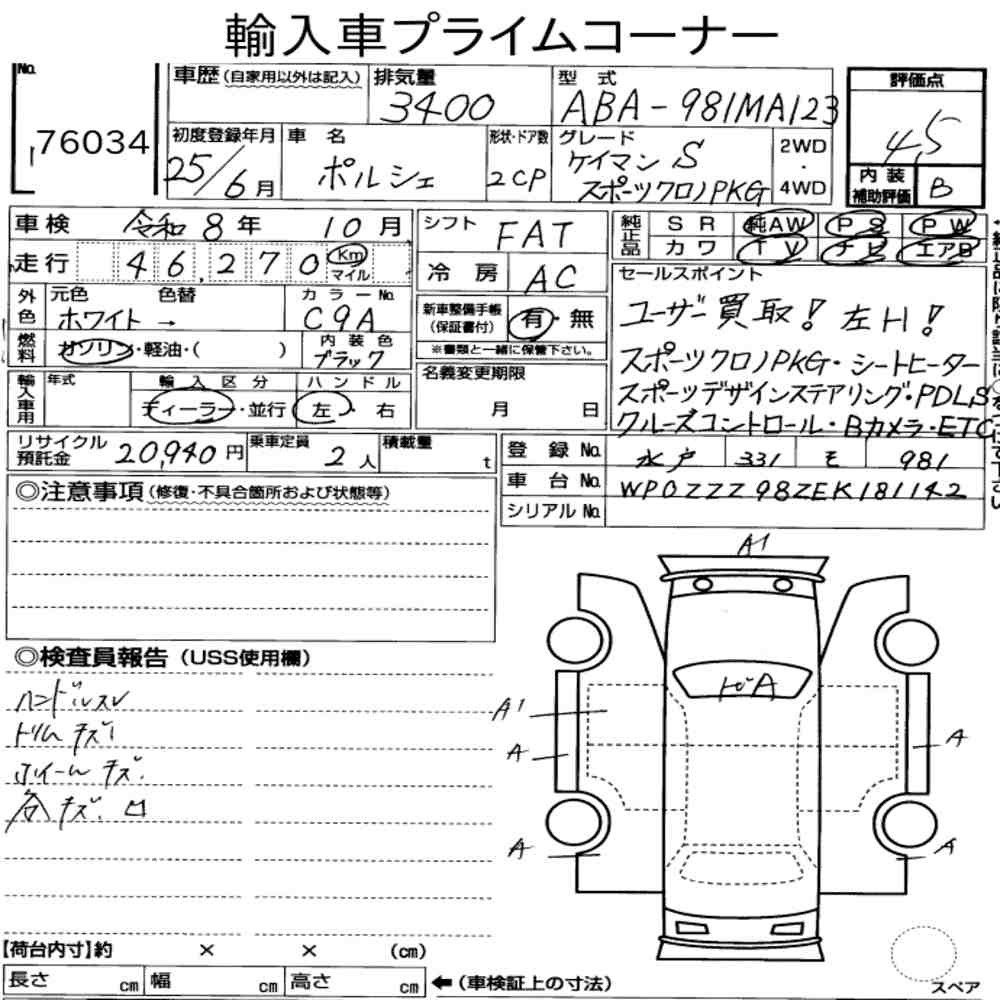 輸入車プライムコーナー
No.
76034
車歴(自家用以外は記入)
排気量
3400
型 式
ABA-981MA123
評価点
4.5
初度登録年月
25/6月
車 名
ポルシェ
形状・ドア数
2CP
グレード
ケイマン S
スポーツクロノPKG
2WD
・
4WD
内装
補助評価
B
車検 令和 8年 10月
シフト
FAT
純正品
SR 純AW PS PW
カワ TV ナビ エアB
走行
46,270
Km
マイル
冷房
AC
セールスポイント
ユーザー買取! 左H!
スポーツクロノPKG・シートヒーター
スポーツデザインステアリング・PDLS
クルーズコントロール・Bカメラ・ETC
外色
元色 色替
ホワイト →
カラーNo.
C9A
新車整備手帳
(保証書付)
有・無
※書類と一緒に保管下さい。
燃料
ガソリン・軽油・( )
内装色
ブラック
名義変更期限
月 日
輸入車用
年式
輸入区分
ディーラー・並行
ハンドル
左・右
リサイクル
預託金
20,940円
乗車定員
2人
積載量
t
登録No.
水戸 331 モ 981
車台No.
WP0ZZZ98ZEK181142
シリアルNo.
◎注意事項(修復・不具合箇所および状態等)
◎検査員報告(USS使用欄)
ハンドルスレ
トリムキズ
ホイールキズ.
各キズ.凹
A1
トビA
A1
A
A
A
A
【荷台内寸】約 × × (cm)
長さ cm 幅 cm 高さ cm
←(車検証上の寸法)
スペア